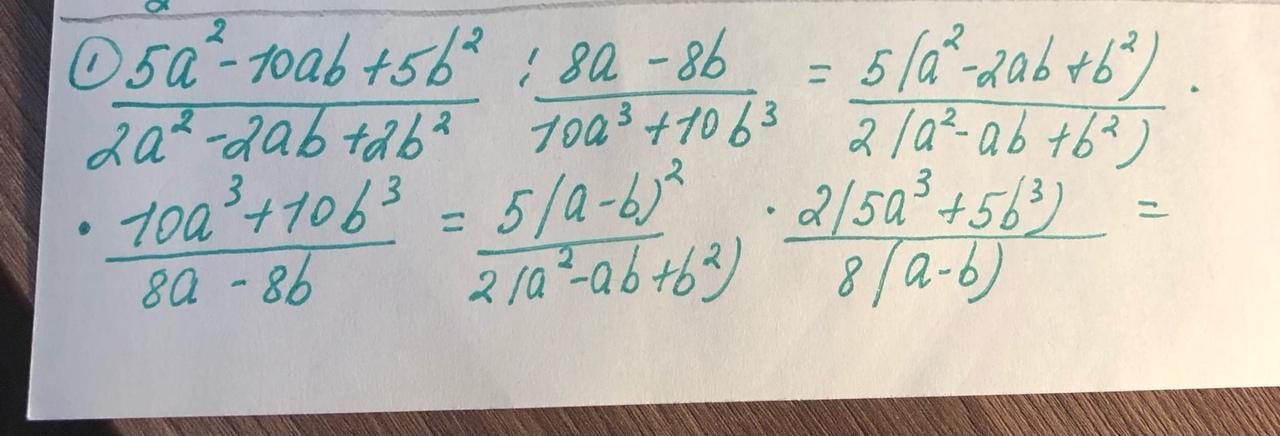 ① 5a² - 10ab + 5b² / 2a² - 2ab + 2b² : 8a - 8b / 10a³ + 10b³ = 5(a² - 2ab + b²) / 2(a² - ab + b²) ·
· 10a³ + 10b³ / 8a - 8b = 5(a - b)² / 2(a² - ab + b²) · 2(5a³ + 5b³) / 8(a - b) =